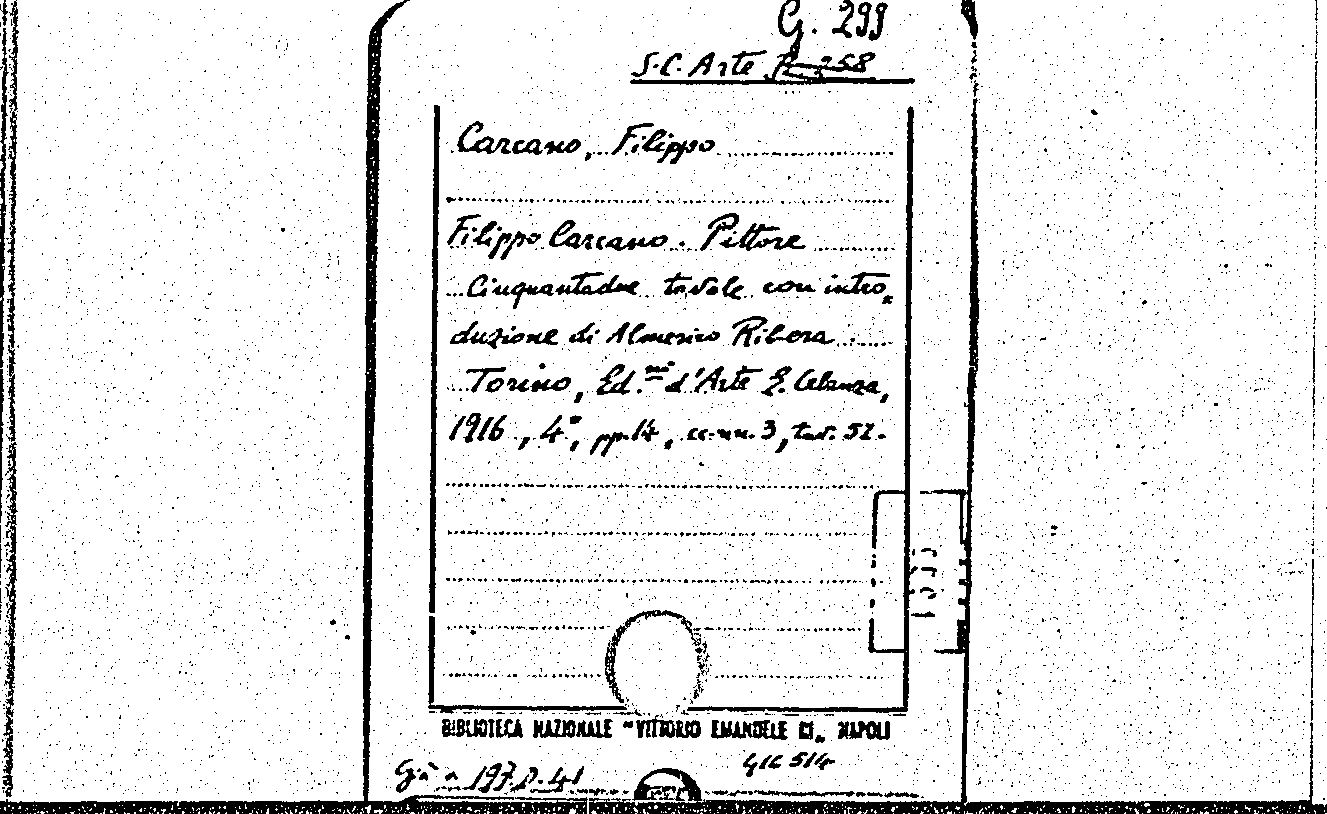 G. 299
S.C. Arte
Carcano, Filippo
Filippo Carcano. Pittore
Cinquantadue tavole con intro-
duzione di Almerico Ribera
Torino, Ed.ni d'Arte E. Celanza,
1916, 4°, pp. 14, cc. nn. 3, tav. 52.
1953
BIBLIOTECA NAZIONALE "VITTORIO EMANUELE III„ NAPOLI
Già 197 D. 41
514